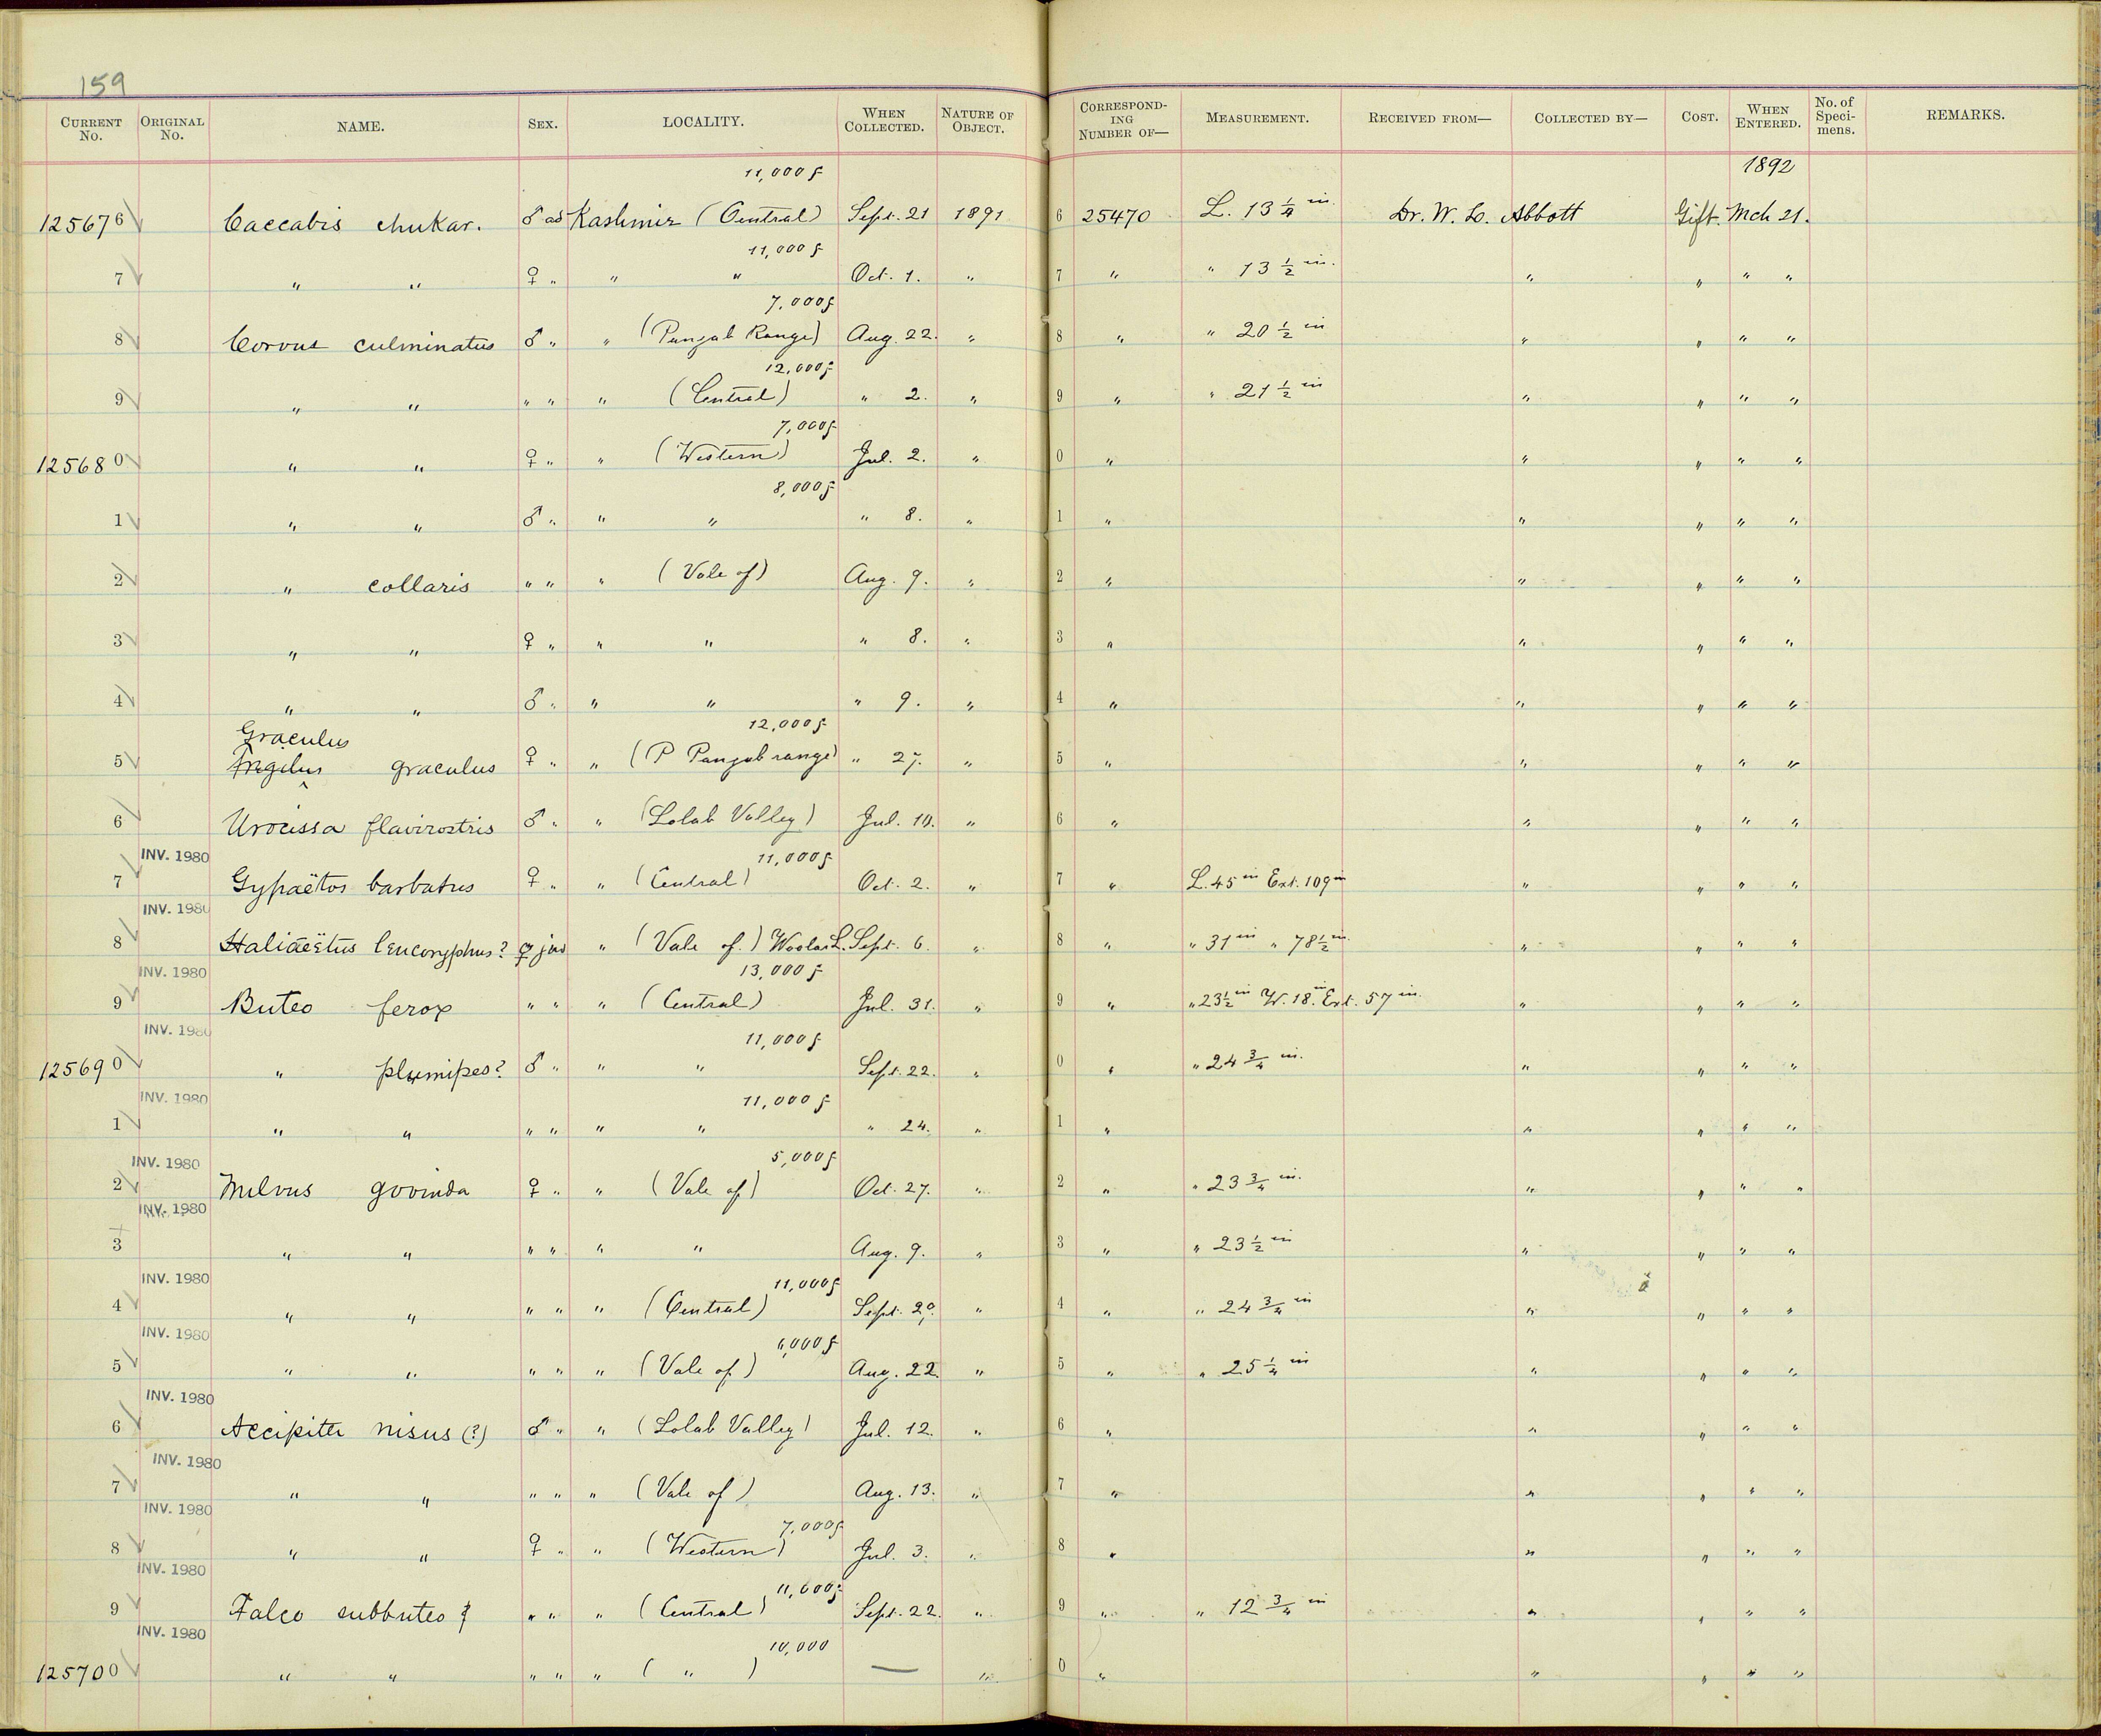 159
CURRENT No. ORIGINAL No. NAME. SEX. LOCALITY. WHEN COLLECTED. NATURE OF OBJECT. CORRESPONDING NUMBER OF— MEASUREMENT. RECEIVED FROM— COLLECTED BY— COST. WHEN ENTERED. No. of Specimens. REMARKS.
11,000 f 1892
125676 Caccabis chukar. ♂ ad Kashmir (Central) Sept. 21 1891 6 25470 L. 13 1/4 in. Dr. W. L. Abbott Gift. Mch 21.
11,000 f
7 " " ♀ " " " Oct. 1. " 7 " " 13 1/2 in. " " " "
7,000 f
8 Corvus culminatus ♂ " " (Punjab Range) Aug. 22. " 8 " " 20 1/2 in " " " "
12,000 f
9 " " " " " (Central) " 2. " 9 " " 21 1/2 in " " " "
7,000 f
125680 " " ♀ " " (Western) Jul. 2. " 0 " " " " "
8,000 f
1 " " ♂ " " " " 8. " 1 " " " " "
2 " collaris " " " (Vale of) Aug. 9. " 2 " " " " "
3 " " ♀ " " " " 8. " 3 " " " " "
4 " " ♂ " " " " 9. " 4 " " " " "
Graculus 12,000 f
5 Fregilus graculus ♀ " " (P Panjab range) " 27. " 5 " " " " "
6 Urocissa flavirostris ♂ " " (Lolab Valley) Jul. 10. " 6 " " " " "
INV. 1980 11,000 f
7 Gypaëtos barbatus ♀ " " (Central) Oct. 2. " 7 " L. 45 in Ext. 109 in " " " "
INV. 1980
8 Haliaëëtus leucoryphus? ♀ juv " (Vale of) Woolar L. Sept. 6. " 8 " " 31 in " 78 1/2 in. " " " "
INV. 1980 13,000 f
9 Buteo ferox " " " (Central) Jul. 31. " 9 " " 23 1/2 in W. 18. in Ext. 57 in. " " " "
INV. 1980 11,000 f
125690 " plumipes? ♂ " " " Sept. 22. " 0 " " 24 3/4 in. " " " "
INV. 1980 11,000 f
1 " " " " " " " 24. " 1 " " " " "
INV. 1980 5,000 f
2 Milvus govinda ♀ " " (Vale of) Oct. 27. " 2 " " 23 3/4 in. " " " "
INV. 1980
3 " " " " " " Aug. 9. " 3 " " 23 1/2 in " " " "
INV. 1980 11,000 f
4 " " " " " (Central) Sept. 29. " 4 " " 24 3/4 in " " " "
INV. 1980 6,000 f
5 " " " " " (Vale of) Aug. 22. " 5 " " 25 1/4 in " " " "
INV. 1980
6 Accipiter nisus (?) ♂ " " (Lolab Valley) Jul. 12. " 6 " " " " "
INV. 1980
7 " " " " " (Vale of) Aug. 13. " 7 " " " " "
INV. 1980 7,000 f
8 " " ♀ " " (Western) Jul. 3. " 8 " " " " "
INV. 1980 11,000 f
9 Falco subbuteo ? " " " (Central) Sept. 22. " 9 " " 12 3/4 in " " " "
INV. 1980 10,000
125700 " " " " " ( " ) — " 0 " " " " "